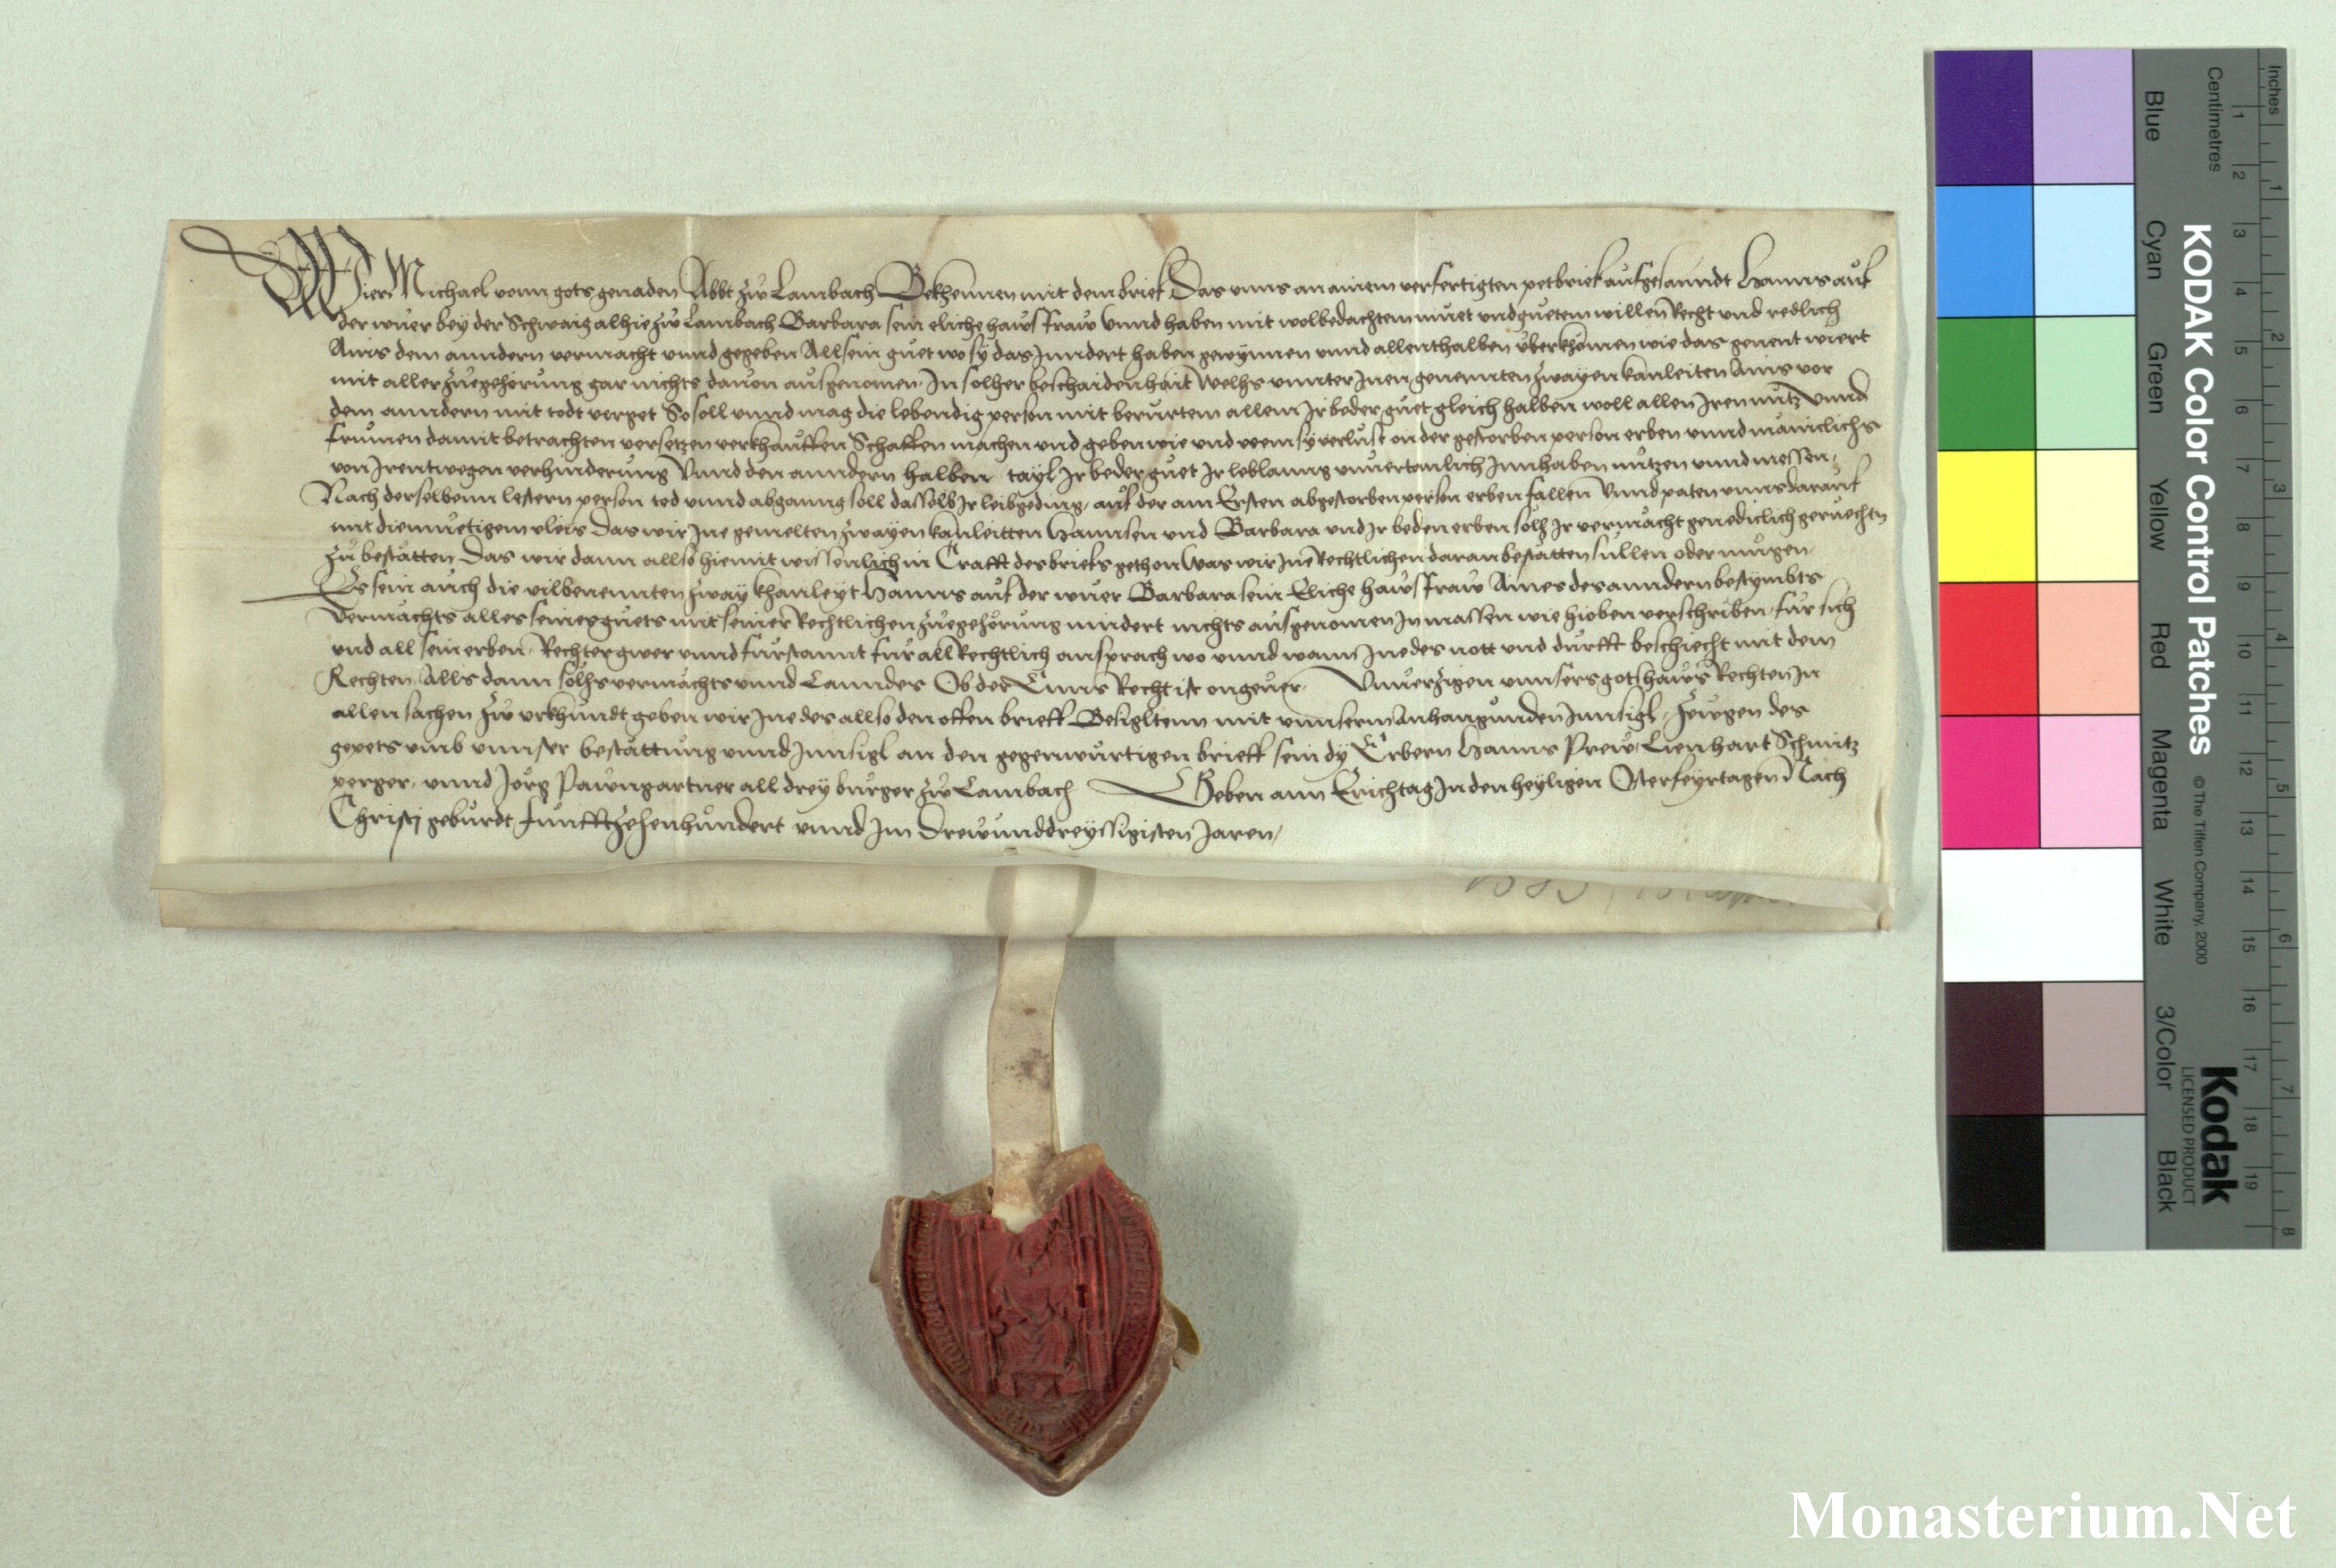 Wier Michael vonn gots genaden Abbt zw Lambach Bekhennen mit dem brief Das vnns an ainem verfertigten petbrief aufgesanndt Hanns auf
der wuer bey der Schwaig alhie zw Lambach Barbara sein eliche hawsfraw vnnd haben mit wolbedachtem muet vnd guetem willen Recht vnd redlich
Ains dem anndern vermacht vnnd gegeben All sein guet wo sy das Inndert haben gewynnen vnnd allenthalben überkhomen wie das genent wiert
mit aller zuegehörung gar nichts dauon ausgenomen In solher beschaidenhait Welhs vnnter Inen genennten zwayen kanleiten Ains vor
dem anndern mit todt verget So soll vnnd mag die lebendig person mit berürtem allem Ir beder guet gleich halben woll allen Iren nutz vnnd
frumen damit betrachten versetzen verkhauffen Schaffen machen vnd geben wie vnd wem sy verlust on der gestorben person erben vnnd maniclichs
von Irentwegen verhinderung Vnnd den anndern halben tayl Ir beder guet Ir leblanng vnuertanlich Innhaben nutzen vnnd niessen
Nach derselbenn lestern person tod vnnd abganng soll dasselb Ir leibgeding auf der am Ersten abgestorben person erben fallen Vnnd paten vnns darauf
mit diemuetigem vleis Das wir Ine gemelten zwayen kanleitten Hannsen vnd Barbara vnd Ir beden erben solh Ir vermächt genediclich geruechtn
zu bestätten Das wir dann allso hiemit wissenlich in Crafft des briefs gethon Was wir Ine Rechtlichen daran bestätten süllen oder mügen
Es sein auch die vilbenennten zway khanleyt Hanns auf der wuer Barbara sein Eliche hawsfraw Aines des anndern bestymbts
Vermächts alles seines guets mit seiner Rechtlichen zuegehörung nindert nichts ausgenomen In massen wie hioben verschriben für sich
vnd all sein erben Recht er gwer vnnd fürstannt für all Rechtlich ansprach wo vnnd wann Ine des nott vnd durfft beschiecht mit dem
Rechten Alls dann solhs vermächts vnnd Lanndes Ob der Enns Recht ist ongeuer Vnuerzigen vnnsers gotshaws Rechten In
allen sachen Zw vrkhundt geben wir Ine des allso den offen brieff Besigltenn mit vnnserm Anhangunden Innsigl Zewgen des
gepets vmb vnnser bestättung vnnd Innsigl an den gegenwürtigen brieff sein dy Erbern Hanns Prew Lienhart Schmitz
perger vnnd Jörg Pawngartner all drey burger zw Lambach Geben ann Erichtag In den heyligen Osterfeyrtagen Nach
Christj geburdt funffzehenhundert vnnd Im Drewunddreyssigisten Jaren
KODAK Color Control Patches
© The Tiffen Company, 2000
Kodak
LICENSED PRODUCT
Blue Cyan Green Yellow Red Magenta White 3/Color Black
Centimetres 1 2 3 4 5 6 7 8 9 10 11 12 13 14 15 16 17 18 19
Inches 1 2 3 4 5 6 7 8
Monasterium.Net